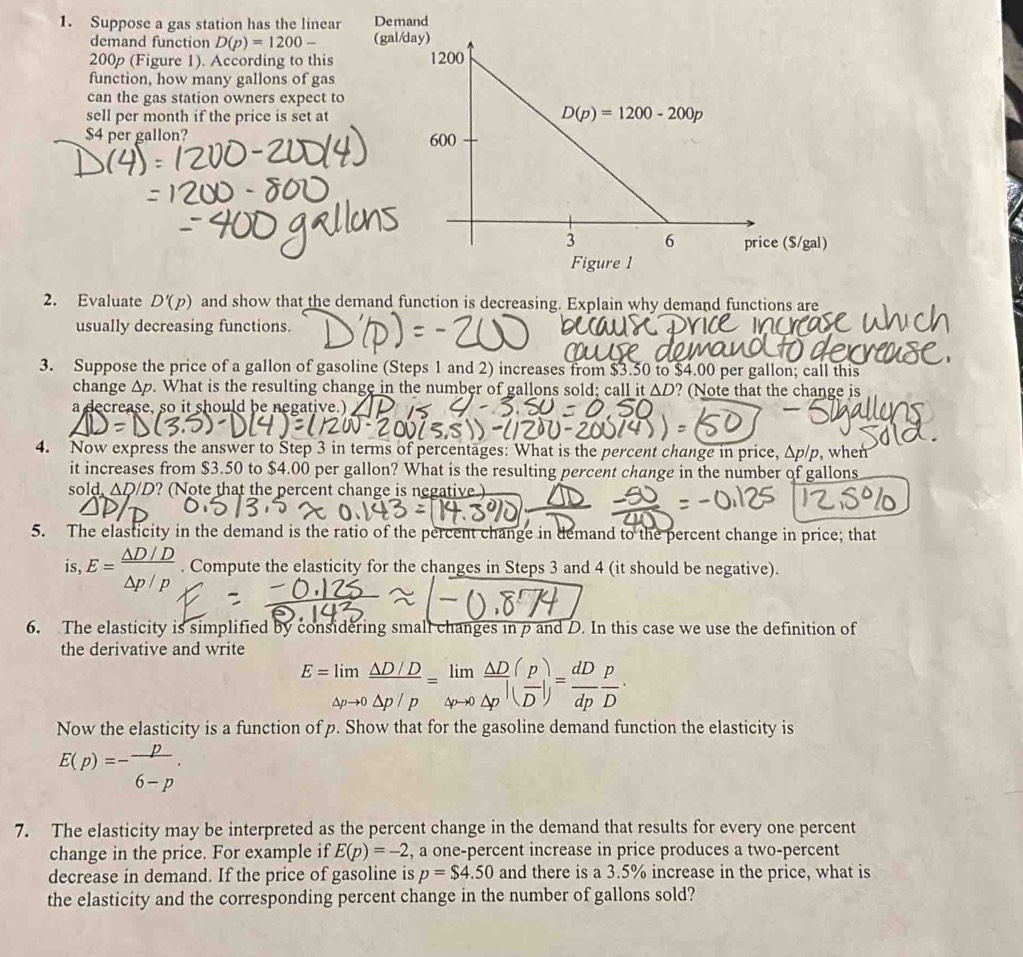 1. Suppose a gas station has the linear
demand function D(p) = 1200 –
200p (Figure 1). According to this
function, how many gallons of gas
can the gas station owners expect to
sell per month if the price is set at
$4 per gallon?
D(4) = 1200-200(4)
= 1200 - 800
= 400 gallons
Demand
(gal/day)
1200
D(p) = 1200 - 200p
600
3 6 price ($/gal)
Figure 1
2. Evaluate D'(p) and show that the demand function is decreasing. Explain why demand functions are
usually decreasing functions.
D'(p) = -200 because price increase which
cause demand to decrease.
3. Suppose the price of a gallon of gasoline (Steps 1 and 2) increases from $3.50 to $4.00 per gallon; call this
change Δp. What is the resulting change in the number of gallons sold; call it ΔD? (Note that the change is
a decrease, so it should be negative.)
ΔP is 4 - 3.50 = 0.50
ΔD = D(3.5)-D(4) = (1200-200(3.5))-(1200-200(4)) = 50
- 50 gallons
sold.
4. Now express the answer to Step 3 in terms of percentages: What is the percent change in price, Δp/p, when
it increases from $3.50 to $4.00 per gallon? What is the resulting percent change in the number of gallons
sold, ΔD/D? (Note that the percent change is negative.)
ΔD/D 0.5/3.5 ≈ 0.143 = 14.3%, ΔD/D -50/400 = -0.125 12.5%
5. The elasticity in the demand is the ratio of the percent change in demand to the percent change in price; that
is, E = (ΔD / D)/(Δp / p). Compute the elasticity for the changes in Steps 3 and 4 (it should be negative).
E = -0.125/0.143 ≈ -0.874
6. The elasticity is simplified by considering small changes in p and D. In this case we use the definition of
the derivative and write
E = lim Δp→0 (ΔD / D)/(Δp / p) = lim Δp→0 ΔD/Δp |(p/D|) = dD/dp p/D.
Now the elasticity is a function of p. Show that for the gasoline demand function the elasticity is
E(p) = – p/(6 – p).
7. The elasticity may be interpreted as the percent change in the demand that results for every one percent
change in the price. For example if E(p) = –2, a one-percent increase in price produces a two-percent
decrease in demand. If the price of gasoline is p = $4.50 and there is a 3.5% increase in the price, what is
the elasticity and the corresponding percent change in the number of gallons sold?